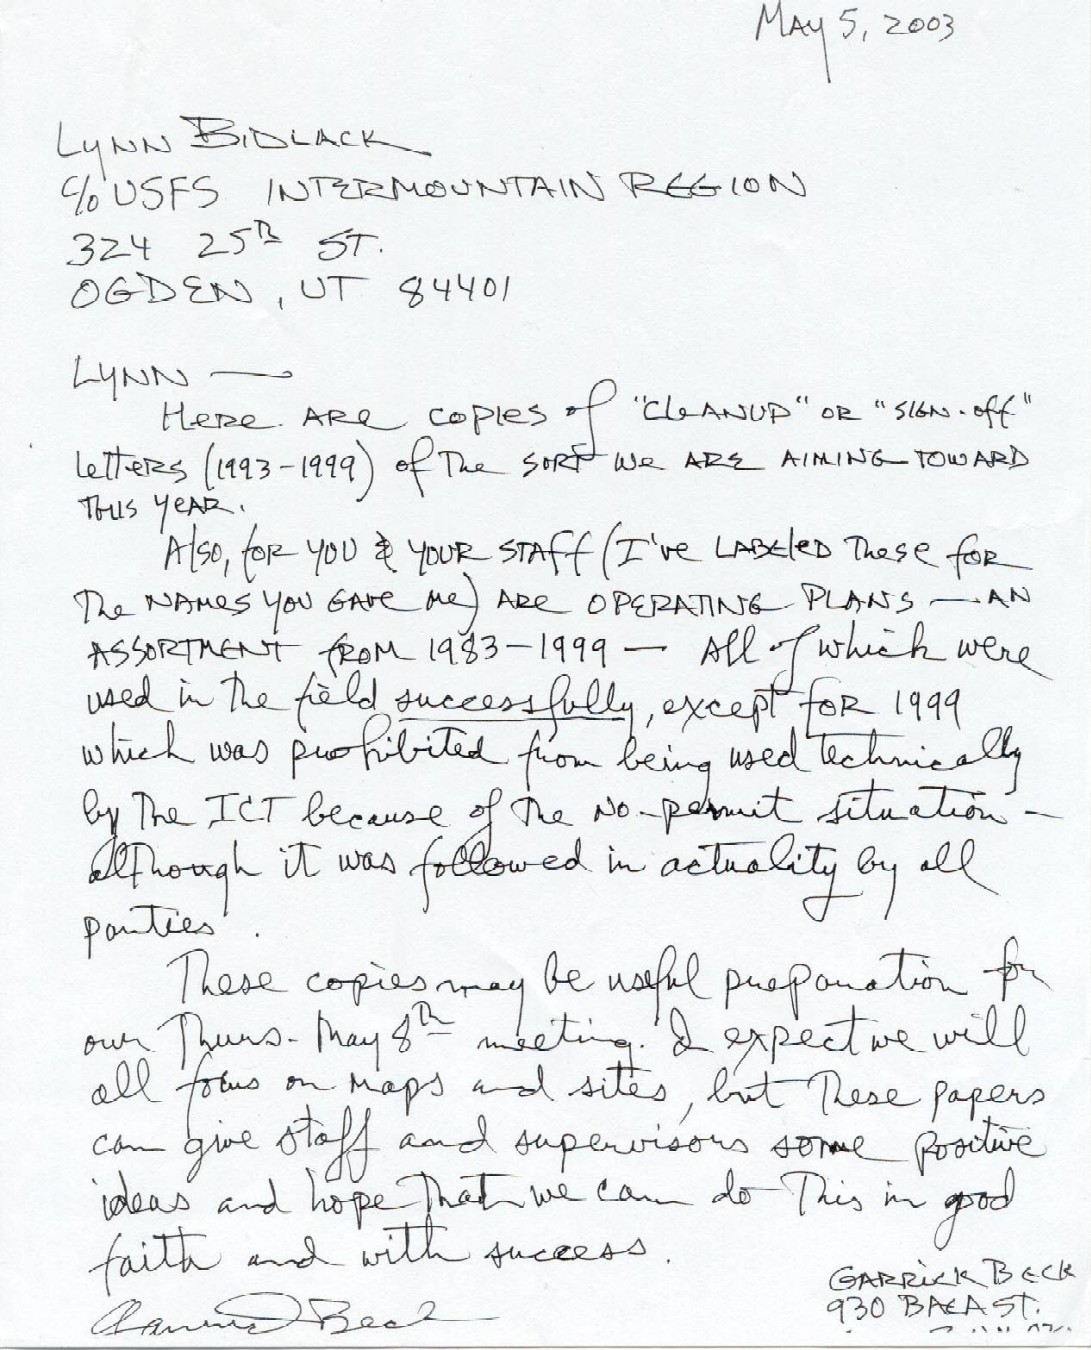 May 5, 2003
Lynn Bidlack
c/o USFS Intermountain Region
324 25th St.
Ogden, UT 84401
Lynn —
Here are copies of "cleanup" or "sign-off"
letters (1993-1999) of the sort we are aiming toward
this year.
Also, for you & your staff (I've labeled these for
the names you gave me) are operating plans — an
assortment from 1983-1999 — all of which were
used in the field successfully, except for 1999
which was prohibited from being used technically
by the ICT because of the no-permit situation -
although it was followed in actuality by all
parties.
These copies may be useful preparation for
our Thurs. May 8th meeting. I expect we will
all focus on maps and sites, but these papers
can give staff and supervisors some positive
ideas and hope that we can do this in good
faith and with success.
Garrick Beck
Garrick Beck
930 Baca St.